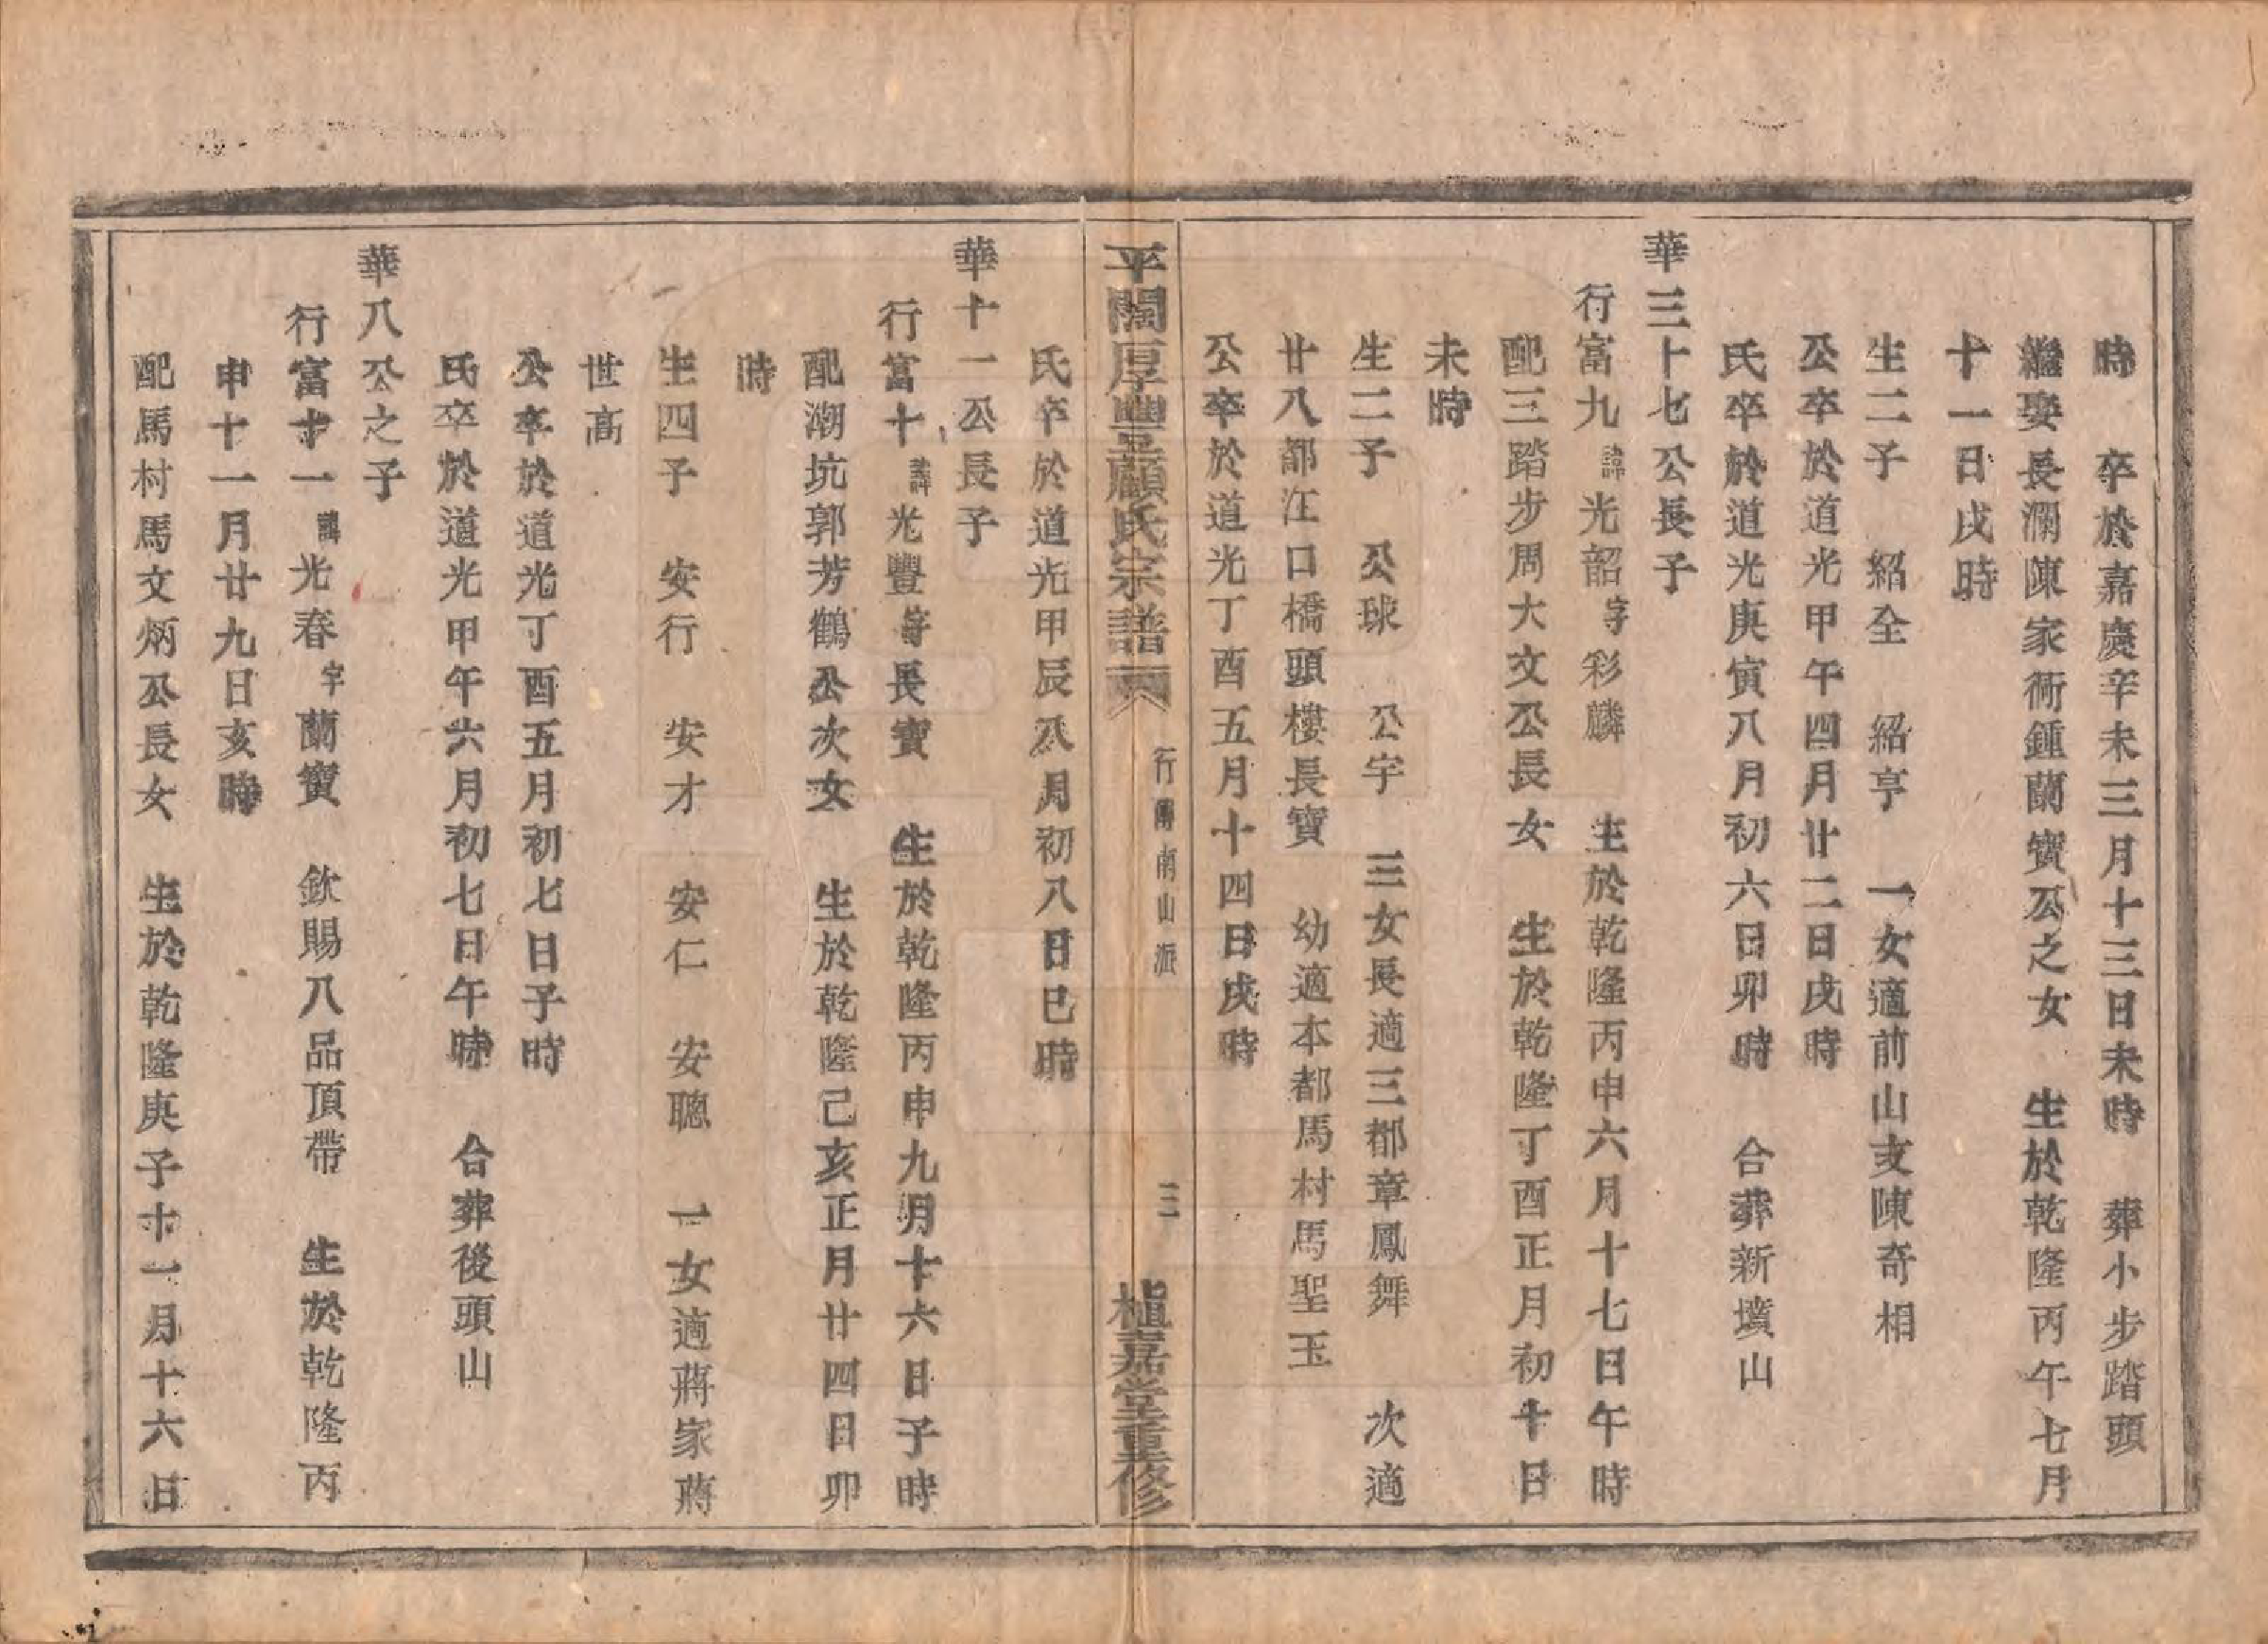 時　卒於嘉慶辛未三月十三日未時　葬小步踏頭
繼娶長瀾陳家衕鍾蘭寶公之女　生於乾隆丙午七月
十一日戌時
生二子　紹全　紹亨　一女適前山支陳奇相
公卒於道光甲午四月廿二日戌時
氏卒於道光庚寅八月初六日卯時　合葬新墳山
華三十七公長子
行富九諱光韶字彩麟　生於乾隆丙申六月十七日午時
配三踏步周大文公長女　生於乾隆丁酉正月初十日
未時
生二子　公球　公宇　三女長適三都章鳳舞　次適
廿八都江口橋頭樓長寶　幼適本都馬村馬聖玉
公卒於道光丁酉五月十四日戌時
平闊厚豐顧氏宗譜　行傳南山派　三　植嘉堂重修
氏卒於道光甲辰八月初八日巳時
華十一公長子
行富十諱光豐字長寶　生於乾隆丙申九月十六日子時
配潮坑郭芳鶴公次女　生於乾隆己亥正月廿四日卯
時
生四子　安行　安才　安仁　安聰　一女適蔣家蔣
世高
公卒於道光丁酉五月初七日子時
氏卒於道光甲午六月初七日午時　合葬後頭山
華八公之子
行富十一諱光春字蘭寶　欽賜八品頂帶　生於乾隆丙
申十一月廿九日亥時
配馬村馬文炳公長女　生於乾隆庚子十一月十六日